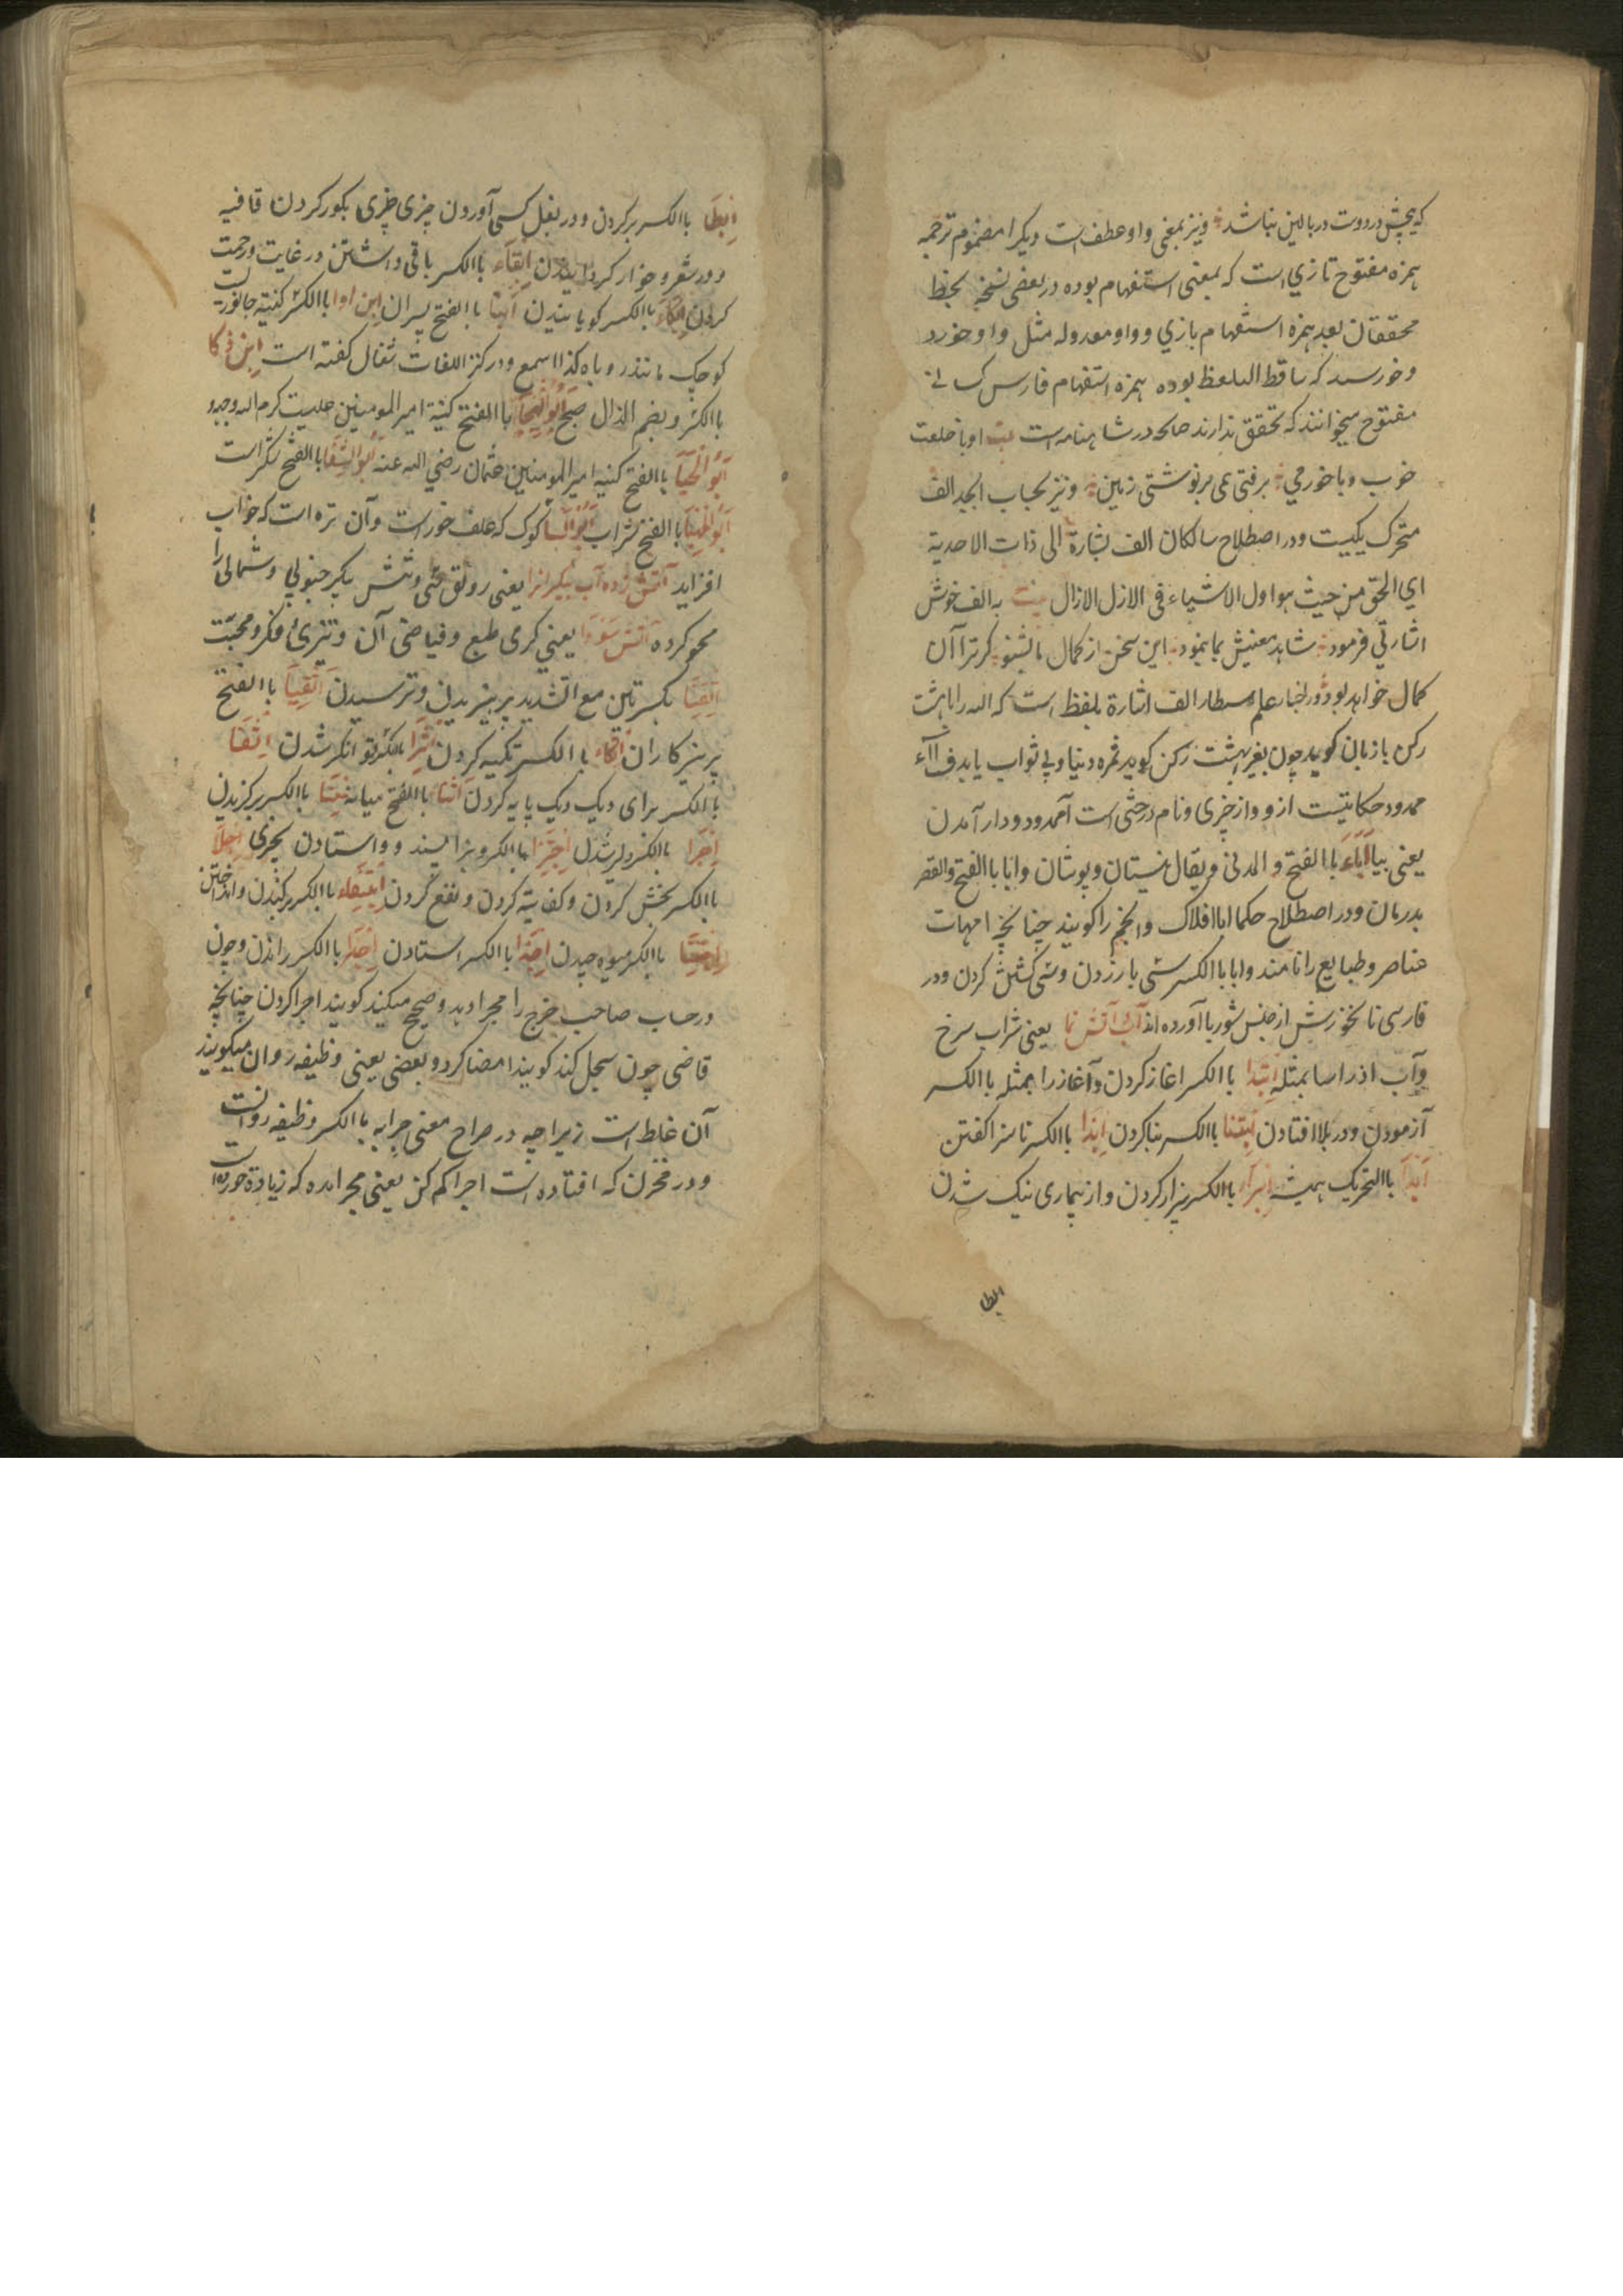 که هیچش در دوت در بالین نباشد و نیز بمعنی واو عطف است دیگر امضموم ترجمه
همزه مفتوح تازی است که بمعنی استفهام بوده در بعضی نسخ بخط
محققان بعد همزه استفهام بازی و واو معدوله مثل واو خورد
و خورسند که ساقط التلفظ بوده همزه استفهام فارس کسانی
مفتوح میخوانند که تحقق ندارند حالکه در شاهنامه است بیت او با خلعت
خوب و با خورمی برفتی همی بر نوشتی زمین و نیز بحساب ابجد الف
متحرک یکیست و در اصطلاح سالکان الف بشارة الی ذات الاحدیة
ای الحق من حیث هو اول الاشیاء فی الازل الازال بیت به الف خوش
اشارتی فرمود شاهد معنیش بما بنمود این سخن از کمال ما بشنو گر ترا آن
کمال خواهد بود و در اخبار علم اسطار الف اشارة بلفظ است که الله را بابهشت
رکن با زبان گوید چون بغیر بهشت رکن گوید ثمره دنیا و بی ثواب یابد ف اآء
ممدود حکایتیست از وواز چیزی و نام درختی است آممدود ودار آمدن
یعنی بیا اَبَاء با الفتح و المدنی و یقال نیستان و پوستان و ابا با الفتح والقصر
بدرمان و در اصطلاح حکما ابا افلاک و انجم را گویند چنانچه امهات
عناصر و طبایع را نامند و ابا با الکسر سنی بازدن و سنی کشش کردن و در
فارسی نانخورش از جنس شوربا آورده اند آب آتش نما یعنی شراب سرخ
و آب اذر اسا بمثله اِبتدا با الکسر اغاز کردن و آغاز را بمثله با الکسر
آزمودن و در بلا افتادن اِبتنا با الکسر بنا کردن اِبذا با الکسر ناسزا گفتن
اَبدا با التحریک همیشه اِبرا با الکسر بیزار کردن و از بیماری نیک شدن
ابطا
اِبطَا با الکسر بر کردن و در بغل کسی آوردن چیزی چیزی بکور کردن قافیه
و در شعر و خوار کردانیدن اِبقاء با الکسر باقی داشتن در غایت و رحمت
کردن اِبکاء با الکسر گویا نیدن اَبنا با الفتح پسران اِبن اوا با الکسر کنیة جانوریست
کوچک مانند روباه کذا اسمع و در کنز اللغات شغال گفته است اِبن ذکا
با الکسر و بضم الذال صبح اَبُو الهیجا با الفتح کنیة امیر المومنین علیست کرم الله وجهه
اَبُو الحَیَا با الفتح کنیه امیر المومنین عثمان رضی الله عنه ابو الشفا با الفتح شکر است
با الفتح شراب کوک که علف خور است و آن تره است که خواب
افزاید آتش زده آب پیکر انرا یعنی رونق مئی و شش پیکر جنوبی و شمالی را
محو کرده آتش سودا یعنی گرمی طبع و فیاضی آن و تیزی فکر و محبّت
اِتّقا بکسرتین مع التشدید پرهیزیدن و ترسیدن اَتقِیَا با الفتح
پرهیز کاران اِتکاء با الکسر تکیه کردن اِثرا بالکسر توانگر شدن اِثفَا
با الکسر برای دیک دیک پایه کردن اَثنا با الفتح میانه اِجتبا با الکسر برگزیدن
اِجترا بالکسر دلیر شدن اِجتزا با الکسر و بزا بسند و واستادن بچیزی اِجلا
با الکسر بخش کردن و کفایته کردن و نفع کردن با الکسر برکندن و انداختن
اِجتنا با الکسر میوه چیدن اِجذا با الکسر استادن اِجرا با الکسر راندن و چون
در حساب صاحب خرج را مجرا دهد و صحیح میکنند گویند اجرا کردن چنانچه
قاضی چون سجل کند گویند امضا کرد و بعضی یعنی وظیفه روان میگویند
آن غلط است زیرا چه در صراح معنی جرایه با الکسر وظیفه روانست
و در مخزن که افتاده است اجرا کم کن یعنی مجرا مده که زیاده خورده است